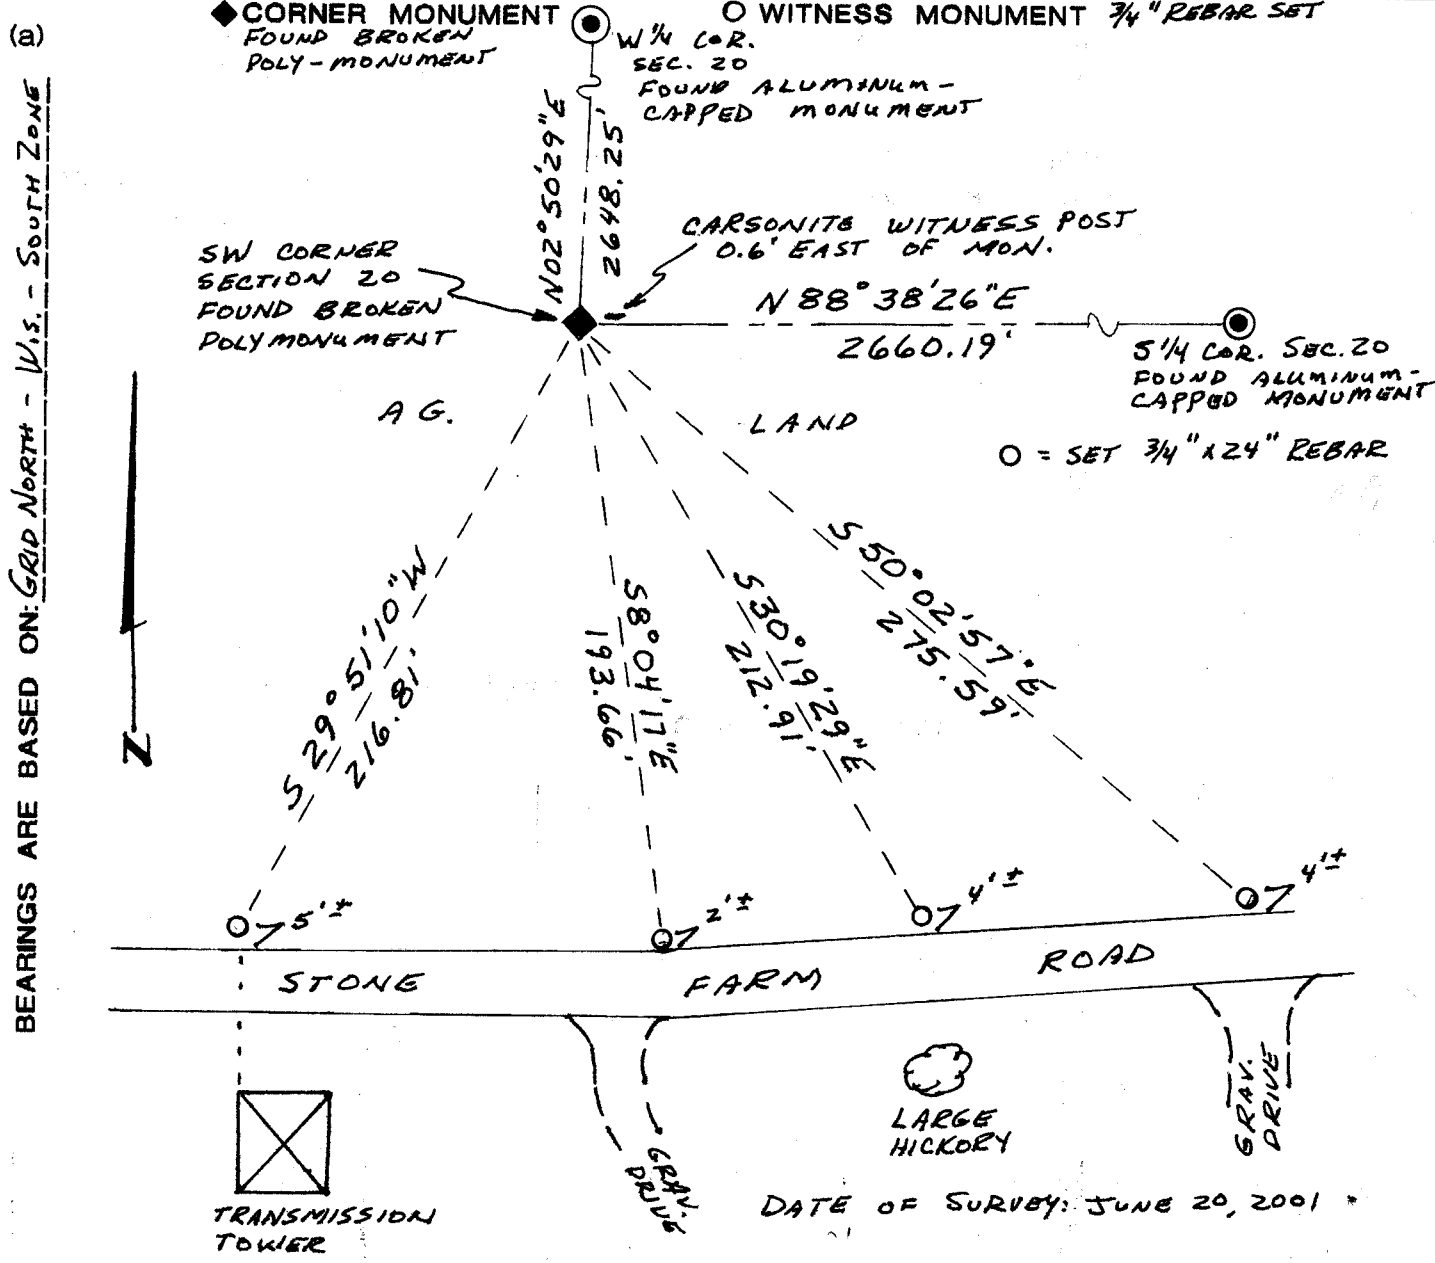 (a)
◆ CORNER MONUMENT
FOUND BROKEN
POLY-MONUMENT
○ WITNESS MONUMENT 3/4" REBAR SET
W 1/4 COR.
SEC. 20
FOUND ALUMINUM-
CAPPED MONUMENT
N02°50'29"E
2648.25'
CARSONITE WITNESS POST
0.6' EAST OF MON.
SW CORNER
SECTION 20
FOUND BROKEN
POLYMONUMENT
N 88°38'26"E
2660.19'
S 1/4 COR. SEC. 20
FOUND ALUMINUM-
CAPPED MONUMENT
AG. LAND
○ = SET 3/4" x 24" REBAR
BEARINGS ARE BASED ON: GRID NORTH - W.S. - SOUTH ZONE
N
S 29°51'10"W
216.81'
S8°04'17"E
193.66'
S30°19'29"E
212.91'
S 50°02'57"E
275.59'
5'±
2'±
4'±
4'±
STONE FARM ROAD
TRANSMISSION
TOWER
GRAV.
DRIVE
LARGE
HICKORY
GRAV.
DRIVE
DATE OF SURVEY: JUNE 20, 2001